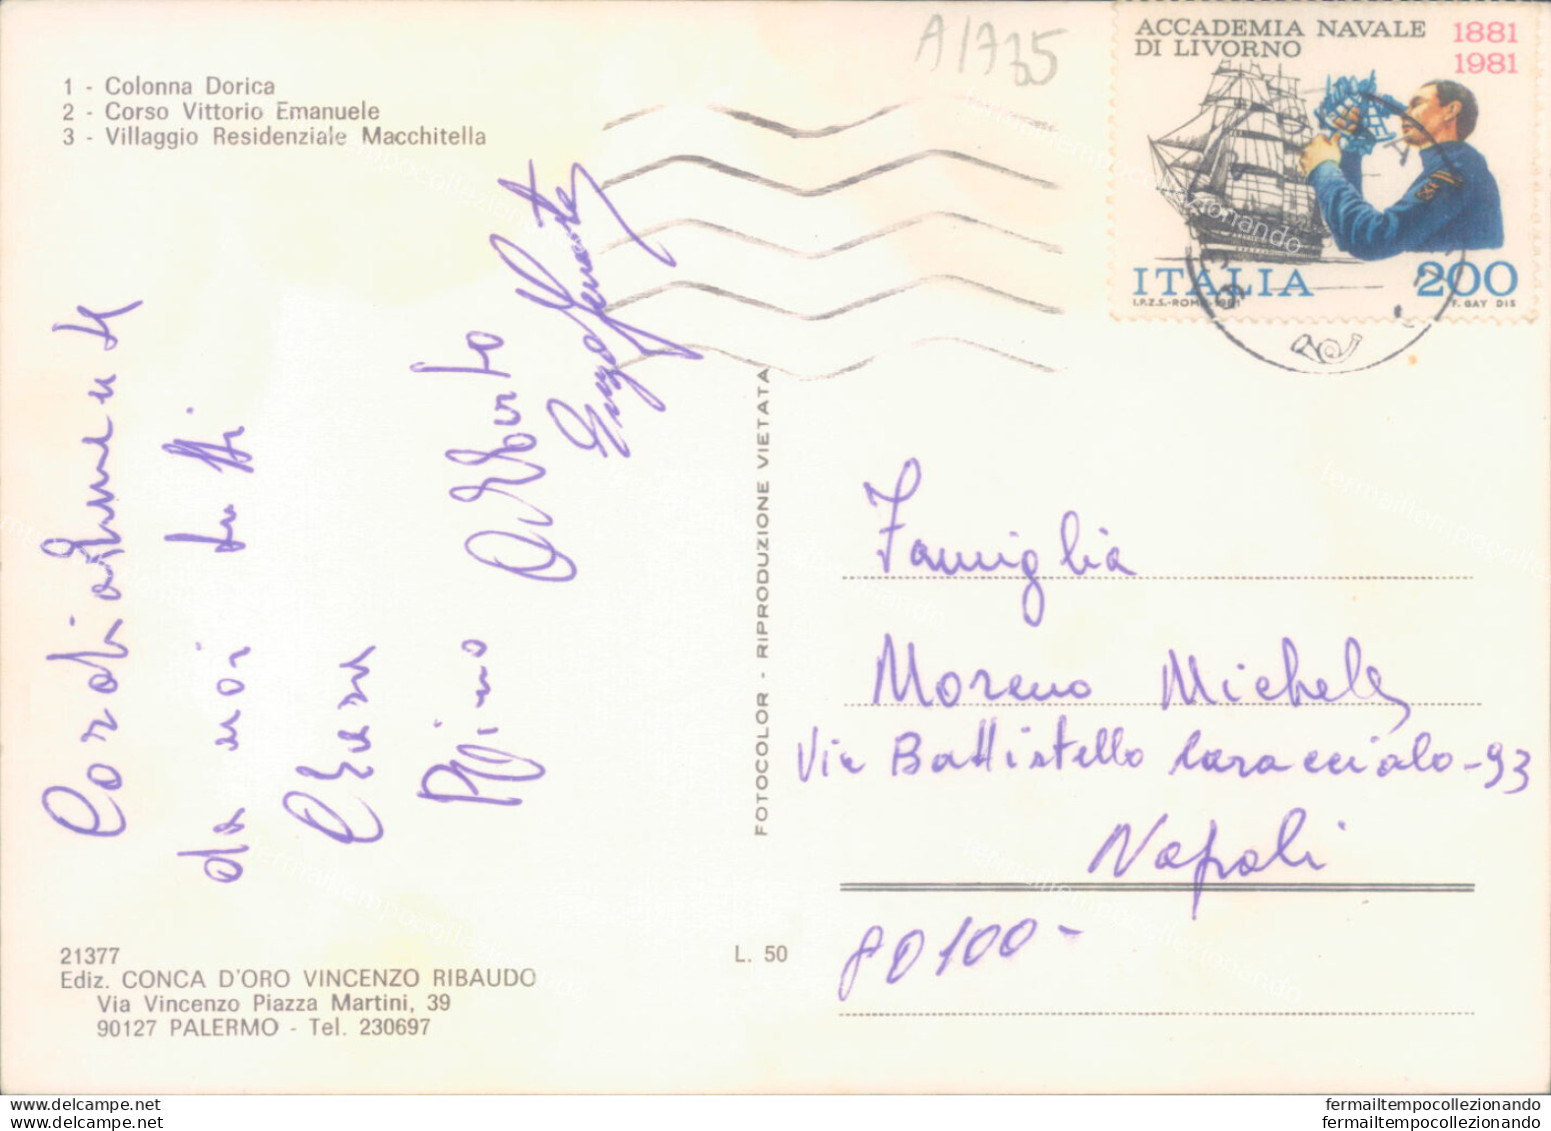 1 - Colonna Dorica
2 - Corso Vittorio Emanuele
3 - Villaggio Residenziale Macchitella
A1735
ACCADEMIA NAVALE
DI LIVORNO
1881
1981
ITALIA 200
I.P.Z.S.-ROMA-1981 F. GAY DIS
Cordialmente
da noi tutti
Pino Alberto
FOTOCOLOR - RIPRODUZIONE VIETATA
Famiglia
Moreno Michele
Via Battistello Caracciolo-93
Napoli
80100-
21377
Ediz. CONCA D'ORO VINCENZO RIBAUDO
Via Vincenzo Piazza Martini, 39
90127 PALERMO - Tel. 230697
L. 50
fermailtempocollezionando
fermailtempocollezionando
delcampe.net
delcampe.net